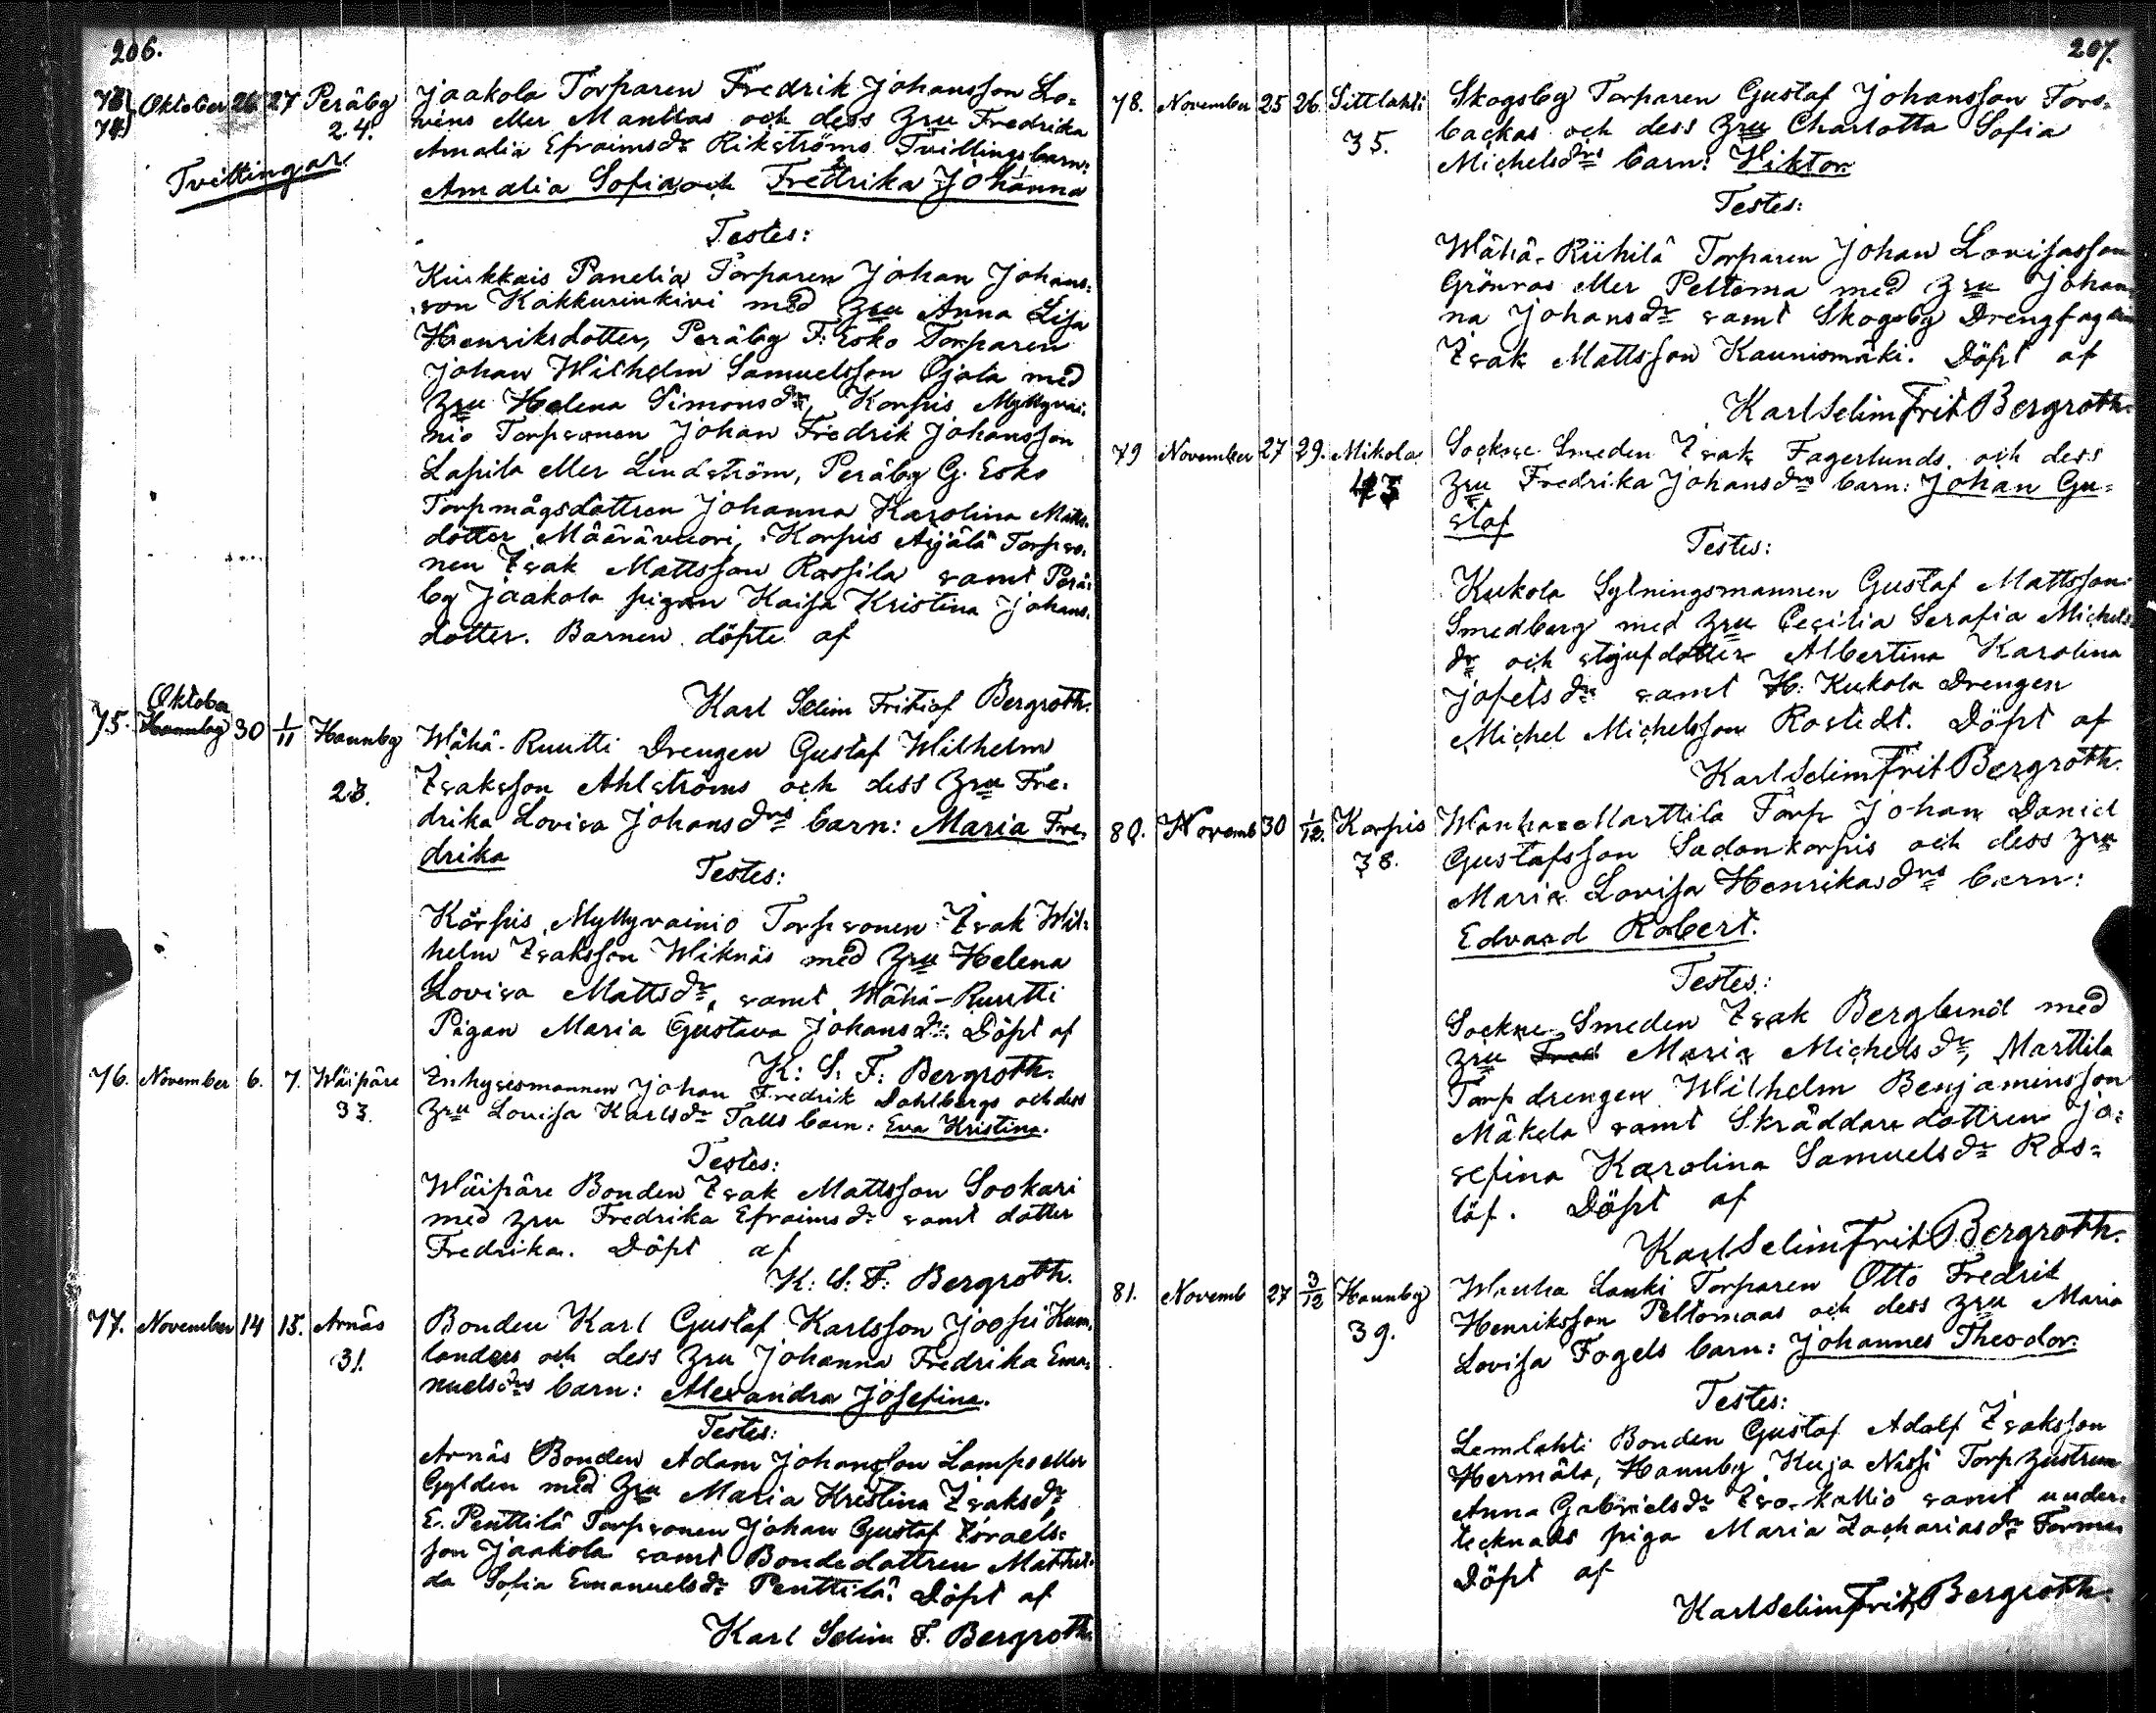 206.
73} Oktober 26 27 Peräby Jaakola Torparen Fredrik Johansson Lo=
74} 24. vens eller Manttas och dess Hru Fredrika
Amalia Efraimsdr Rikströms Tvillingsbarn:
Tvillingar. Amalia Sofia och Fredrika Johanna
Testes:
Kiukkais Panelia Torparen Johan Johans=
son Kakkurinkivi med Hru Anna Lisa
Henriksdotter, Peräby F: Esko Torparen
Johan Wilhelm Samuelsson Ojala med
Hru Helena Simonsdr, Korpis Myllyvai=
nio Torpsonen Johan Fredrik Johansson
Lapila eller Lindström, Peräby G. Esko
Torpmågsdottren Johanna Karolina Matts=
dotter Määrävuori, Korpis Äijälä Torpso=
nen Isak Mattsson Rossila samt Perä=
by Jaakola pigan Kaisa Kristina Johans=
dotter. Barnen döpte af
Karl Selim Fritiof Bergroth.
Oktober
75. Hannby 30 1/11 Hannby Wähä-Ruutti Drengen Gustaf Wilhelm
23. Isaksson Ahlströms och dess Hru Fre=
drika Lovisa Johansdrs barn: Maria Fre=
drika
Testes:
Korpis Myllyvainio Torpsonen Isak Wil=
helm Isaksson Wiknäs med Hru Helena
Lovisa Mattsdr, samt Wähä-Ruutti
Pigan Maria Gustava Johansdr. Döpt af
K: S: F: Bergroth.
76. November 6. 7. Wäipäre Inhysesmannen Johan Fredrik Dahlbergs och dess
33. Hru Lovisa Karlsdr Talls barn: Eva Kristina.
Testes:
Wäipäre Bonden Isak Mattsson Sookari
med Hru Fredrika Efraimsdr samt dotter
Fredrika. Döpt af
K: S: F: Bergroth.
77. November 14 15. Arnäs Bonden Karl Gustaf Karlsson Joopi Kum=
31. landers och dess Hru Johanna Fredrika Ema=
nuelsdrs barn: Alexandra Josefina.
Testes:
Arnäs Bonden Adam Johansson Lampo eller
Gylden med Hru Maria Kristina Isaksdr
E. Penttilä Torpsonen Johan Gustaf Israels=
son Jaakola samt Bondedottren Mathil=
da Sofia Emanuelsdr Penttilä. Döpt af
Karl Selim F. Bergroth.
207.
78. November 25 26. Sittlahti Skogsby Torparen Gustaf Johansson Fors=
35. backas och dess Hru Charlotta Sofia
Michelsdrs barn: Wiktor.
Testes:
Wähä-Riihilä Torparen Johan Lovisasson
Grönroos eller Peltoma med Hru Johan=
na Johansdr samt Skogsby Dreng
Isak Mattsson Kaunismäki. Döpt af
Karl Selim Frit Bergroth.
79 November 27 29. Mikola Sockne Smeden Isak Fagerlunds och dess
43 Hru Fredrika Johansdrs barn: Johan Gu=
staf
Testes:
Kukola Sytningsmannen Gustaf Mattsson
Smedberg med Hru Cecilia Serafia Michels=
dr och styufdotter Albertina Karolina
Jofelsdr samt H: Kukola Drengen
Michel Michelsson Rostedt. Döpt af
Karl Selim Frit Bergroth.
80. Novemb 30 1/12. Korpis Wanha=Marttila Torp Johan Daniel
38. Gustafsson Sadonkorpis och dess Hru
Maria Lovisa Henrikasdrs barn:
Edvard Robert.
Testes:
Sockne Smeden Isak Berglund med
Hru Fred Maria Michelsdr, Marttila
Torp drengen Wilhelm Benjaminsson
Mäkela samt Skräddaredottren Jo=
sefina Karolina Samuelsdr Ros=
löf. Döpt af
Karl Selim Frit Bergroth.
81. Novemb 27 3/12 Hannby Wanha Lanki Torparen Otto Fredrik
39. Henriksson Peltomaas och dess Hru Maria
Lovisa Fogels barn: Johannes Theodor.
Testes:
Lemlahti Bonden Gustaf Adolf Isaksson
Hermäla, Hannby Kuja Nissi Torp Hustrun
Anna Gabrielsdr Isokallio samt under=
tecknads piga Maria Zachariasdr
Döpt af
Karl Selim Frit. Bergroth.